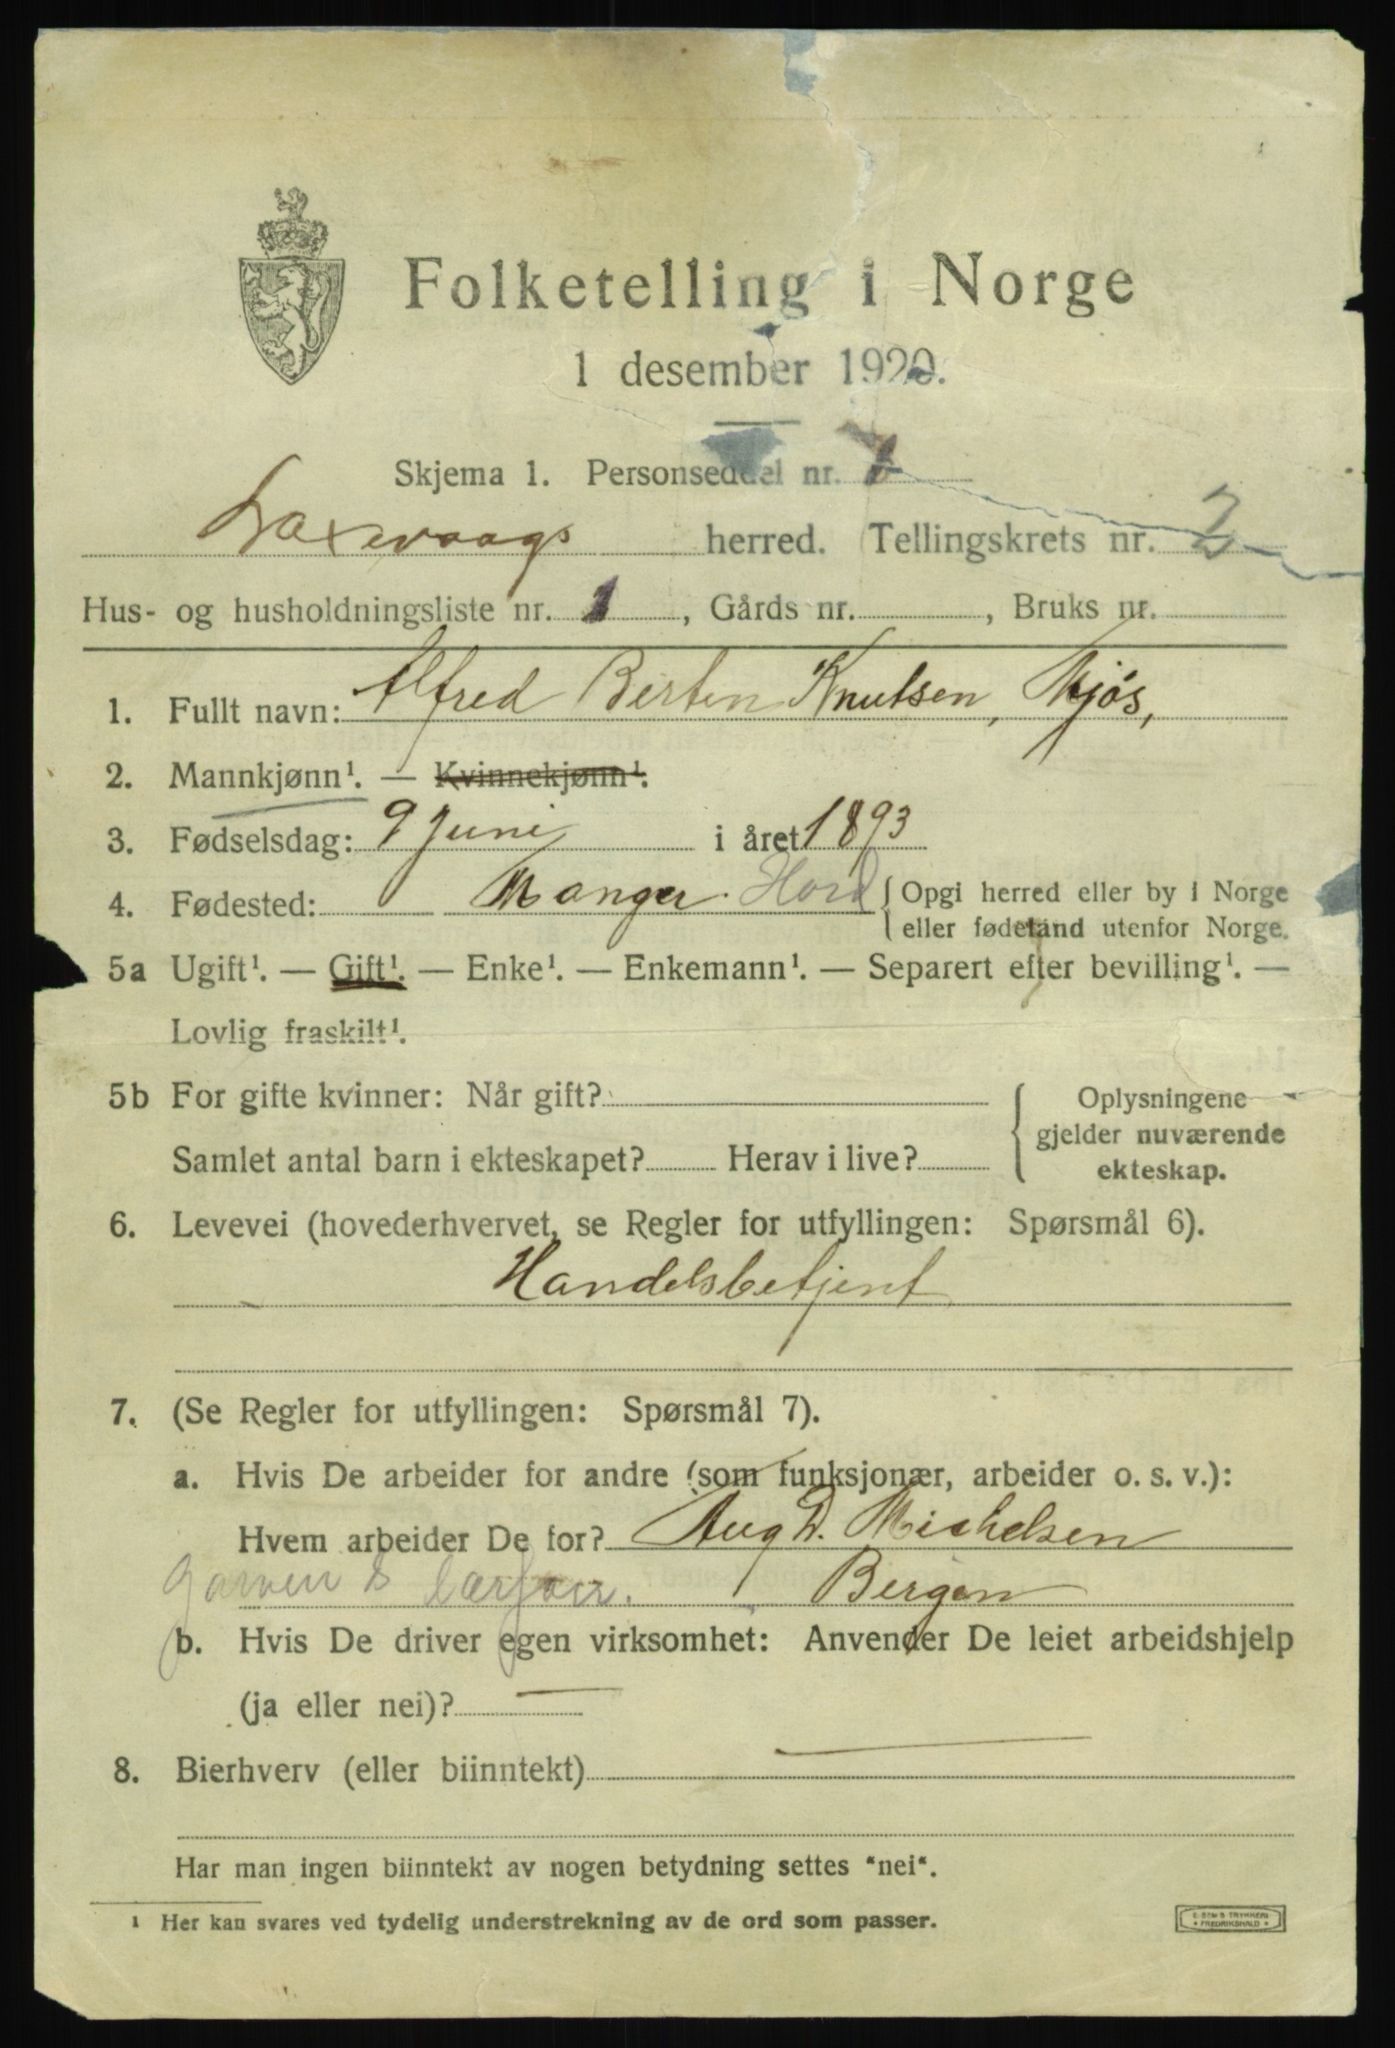 Folketelling i Norge
1 desember 1920.
Skjema 1. Personseddel nr. 1
Laxevaags herred. Tellingskrets nr. 2
Hus- og husholdningsliste nr. 1, Gårds nr. , Bruks nr.
1. Fullt navn: Alfred Berten Knutsen,
2. Mannkjønn¹. — Kvinnekjønn¹.
3. Fødselsdag: 9 Juni i året 1893
4. Fødested: Manger. Hord { Opgi herred eller by i Norge
eller fødeland utenfor Norge.
5a Ugift¹. — Gift¹. — Enke¹. — Enkemann¹. — Separert efter bevilling¹. —
Lovlig fraskilt¹.
5b For gifte kvinner: Når gift? { Oplysningene
gjelder nuværende
Samlet antal barn i ekteskapet? Herav i live?
ekteskap.
6. Levevei (hovederhvervet, se Regler for utfyllingen: Spørsmål 6).
Handelsbetjent
7. (Se Regler for utfyllingen: Spørsmål 7).
a. Hvis De arbeider for andre (som funksjonær, arbeider o. s. v.):
Hvem arbeider De for? Aug D. Michelsen
Bergen
b. Hvis De driver egen virksomhet: Anvender De leiet arbeidshjelp
(ja eller nei)? —
8. Bierhverv (eller biinntekt) —
Har man ingen biinntekt av nogen betydning settes "nei".
¹ Her kan svares ved tydelig understrekning av de ord som passer.